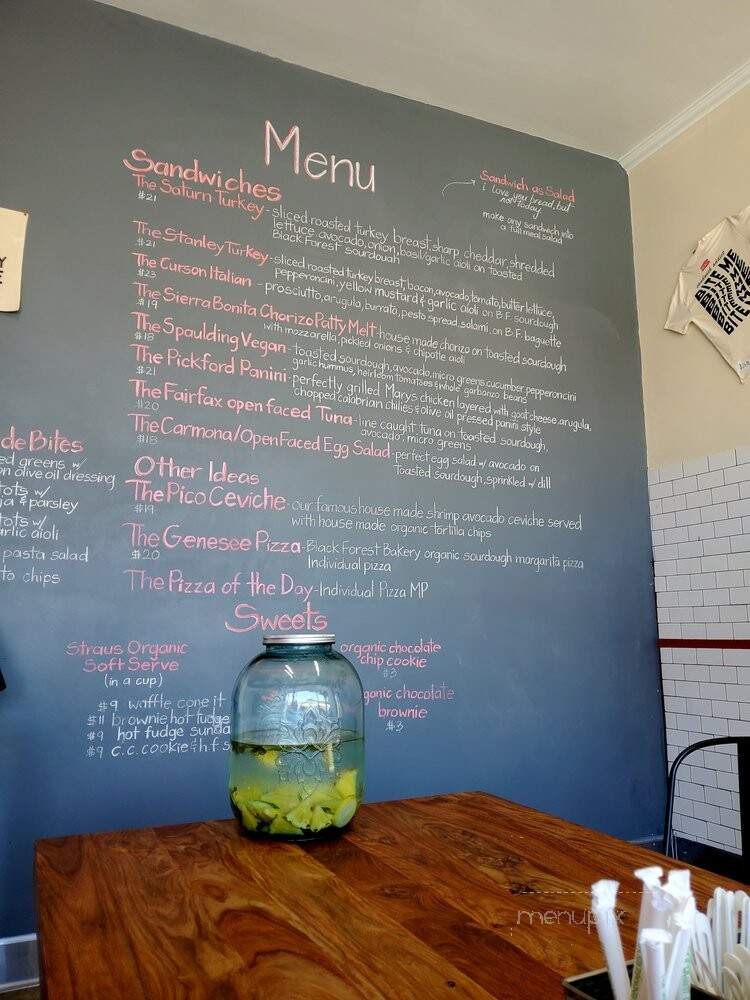 Menu
Sandwiches
The Saturn Turkey - sliced roasted turkey breast, sharp cheddar, shredded
$21
lettuce, avocado, onion, basil/garlic aioli on toasted
Black Forest sourdough
The Stanley Turkey - sliced roasted turkey breast, bacon, avocado, tomato, butter lettuce,
$21
pepperoncini, yellow mustard & garlic aioli on B.F. sourdough
The Curson Italian - prosciutto, arugula, burrata, pesto spread, salami, on B.F. baguette
$23
The Sierra Bonita Chorizo Patty Melt - house made chorizo on toasted sourdough
$19
with mozzarella, pickled onions & chipotle aioli
The Spaulding Vegan - toasted sourdough, avocado, micro greens, cucumber, pepperoncini
$18
garlic hummus, heirloom tomatoes & whole garbanzo beans
The Pickford Panini - perfectly grilled Marys chicken layered with goat cheese, arugula,
$21
chopped calabrian chilies & olive oil pressed panini style
The Fairfax open faced Tuna - line caught tuna on toasted sourdough,
$20
avocado, micro greens
The Carmona/Open Faced Egg Salad - perfect egg salad w/ avocado on
$18
Toasted sourdough, sprinkled w/ dill
Other Ideas
The Pico Ceviche - our famous house made shrimp avocado ceviche served
$19
with house made organic tortilla chips
The Genesee Pizza - Black Forest Bakery organic sourdough margarita pizza
$20
Individual pizza
The Pizza of the Day - Individual Pizza MP
Sandwich as Salad
i love you bread, but
not today
make any sandwich into
a full meal salad
de Bites
ed greens w/
on olive oil dressing
tots w/
ja & parsley
tots w/
arlic aioli
pasta salad
to chips
Sweets
Straus Organic
Soft Serve
(in a cup)
$9 waffle cone it
$11 brownie hot fudge
$9 hot fudge sunda
$9 c.c. cookie & h.f s
organic chocolate
chip cookie
$3
ganic chocolate
brownie
$3
BITE ME
menupix